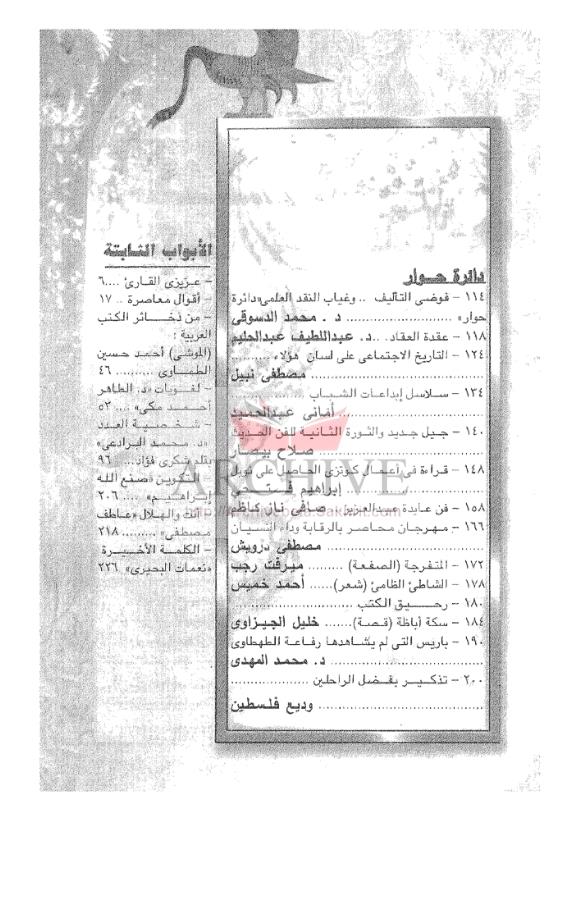 دائرة حوار
١١٤ - فوضى التأليف .. وغياب النقد العلمى «دائرة
حوار» .......................... د . محمد الدسوقى
١١٨ - عقدة العقاد. ..د. عبداللطيف عبدالحليم
١٢٤ - التاريخ الاجتماعى على لسان هؤلاء ..........
............................ مصطفى نبيل
١٣٤ - سلاسل إبداعات الشباب ..................
............................ أمانى عبدالحميد
١٤٠ - جيل جديد والثورة الثانية للفن الحديث
............................ صلاح بيصار
١٤٨ - قراءة فى أعمال كوتزى الحاصل على نوبل
............................ إبراهيم فتحى
١٥٨ - فن عايدة عبدالعزيز .. صافى ناز كاظم
١٦٦ - مهرجان محاصر بالرقابة وداء النسيان
............................ مصطفى درويش
١٧٢ - المتفرجة (الصفعة) ......... ميرفت رجب
١٧٨ - الشاطئ الظامئ (شعر)...... أحمد خميس
١٨٠ - رحيق الكتب ............................
١٨٤ - سكة أباظة (قصة)....... خليل الجيزاوى
١٩٠ - باريس التى لم يشاهدها رفاعة الطهطاوى
............................ د. محمد المهدى
٢٠٠ - تذكير بفضل الراحلين ..................
............................ وديع فلسطين
الأبواب الثابتة
- عزيزى القارئ ....٦
- أقوال معاصرة .. ١٧
- من ذخائر الكتب
العربية :
(الموشى) أحمد حسين
الطماوى .......... ٤٦
- لغويات «د. الطاهر
أحمد مكى» .... ٥٢
- شخصية العدد
«د. محمد البرادعى»
بقلم شكرى فؤاد.... ٩٦
- التكوين «صنع الله
إبراهيم» .... ٢٠٦
- أنت والهلال «عاطف
مصطفى» ......... ٢١٨
- الكلمة الأخيرة
«نعمات البحيرى» ٢٢٦
ARCHIVE